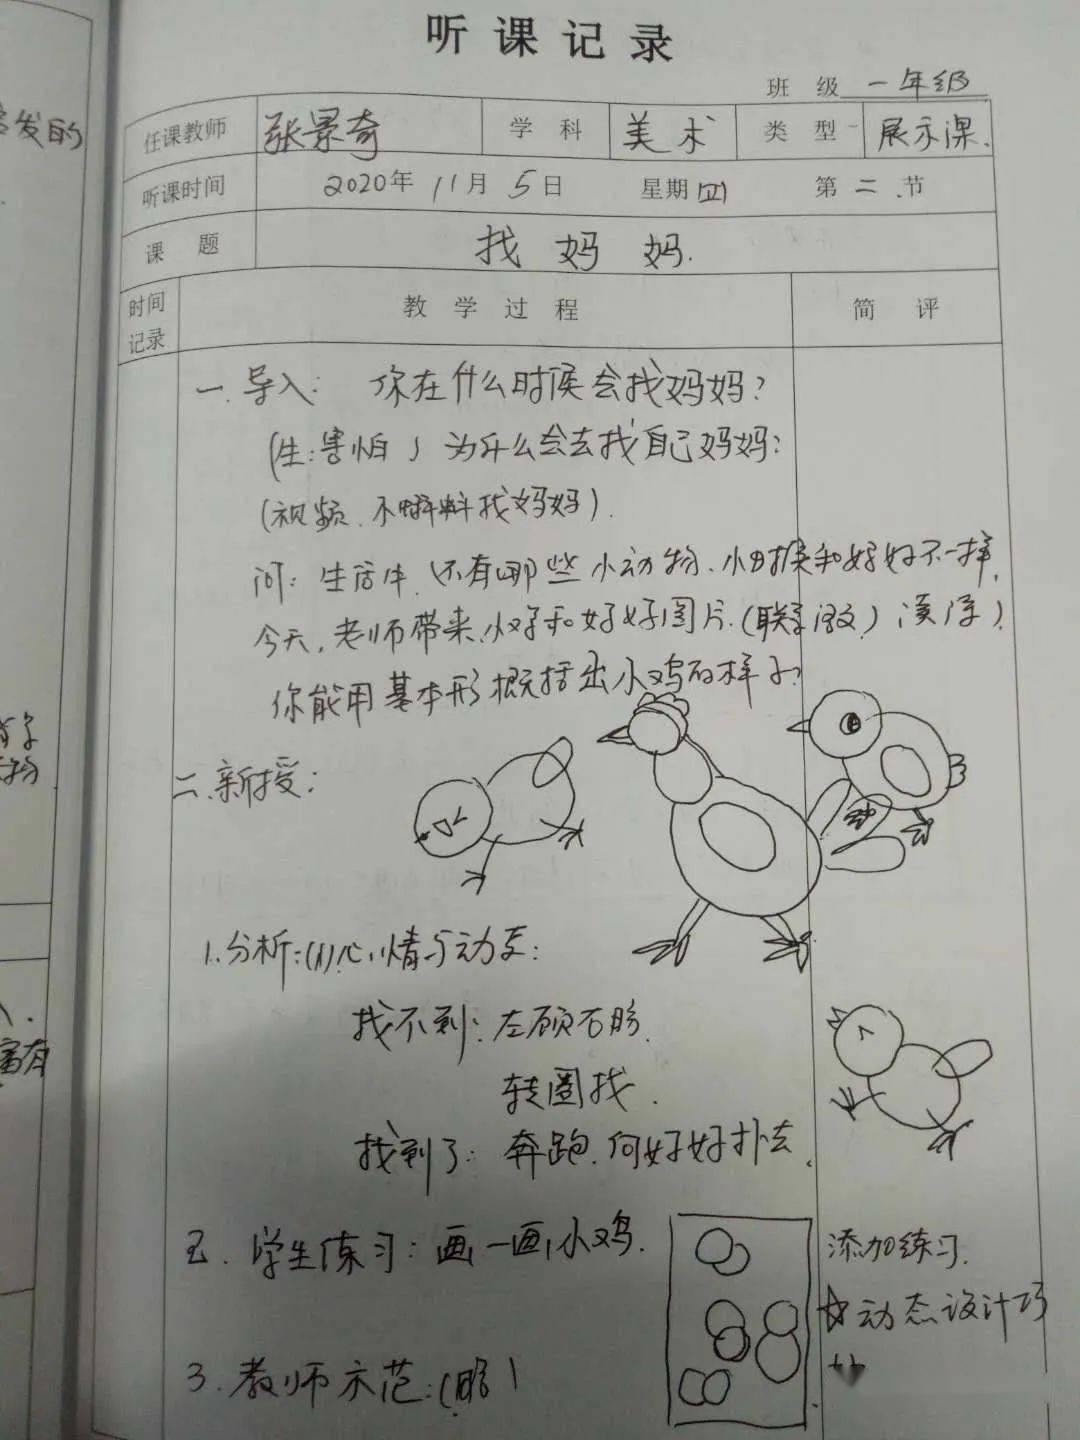 听课记录
班级 一年级
任课教师 张景奇 学科 美术 类型 展示课.
听课时间 2020年 11月 5日 星期四 第二节
课题 找妈妈.
时间记录 教学过程 简评
发的
一.导入: 你在什么时候会找妈妈?
(生:害怕) 为什么会去找自己妈妈:
(视频.不蝌蚪找妈妈).
问: 生活中.还有哪些小动物.
今天.老师带来.图片.
你能用基本形概括出小鸡的样子?
二.新授:
1.分析:(1)心情与动态:
找不到: 左顾右盼.
转圈找.
找到了: 奔跑.向妈妈扑去.
2. 学生练习: 画一画小鸡. 添加练习.
☆动态设计巧
3.教师示范:(略)